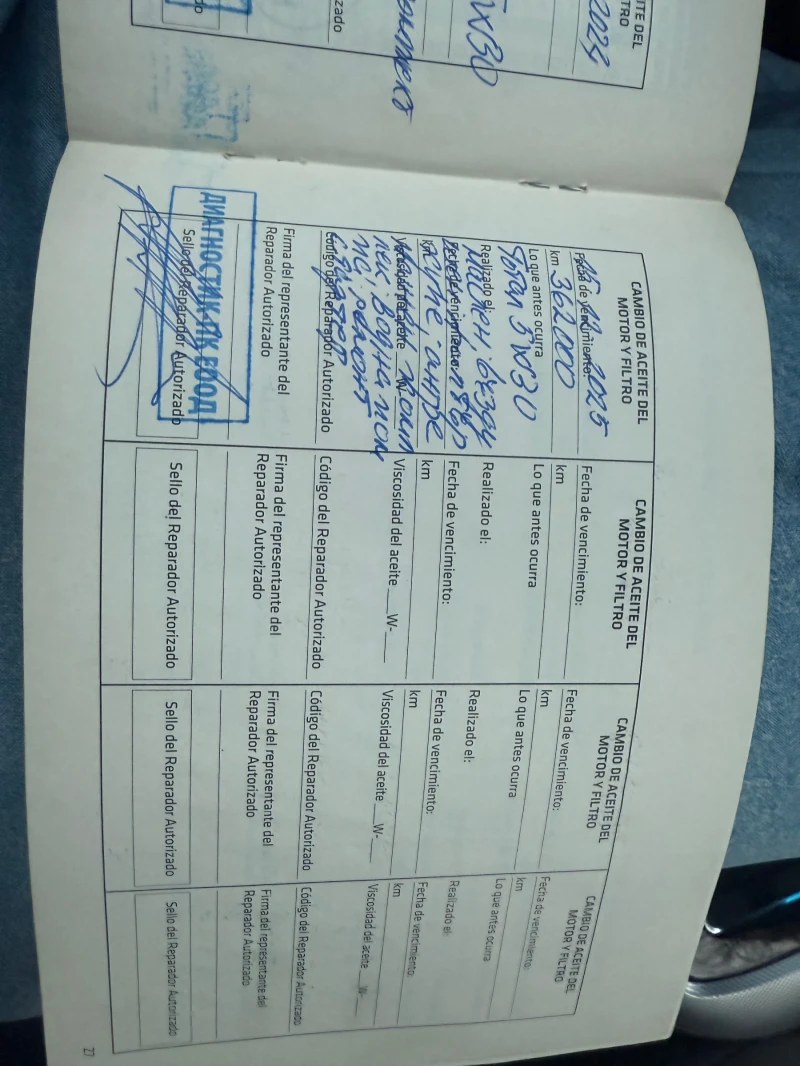 ACEITE DEL
TRO
2024
5W30
zado
CAMBIO DE ACEITE DEL
MOTOR Y FILTRO
Fecha de vencimiento:
2025
km 362000
Lo que antes ocurra
Total 5W30
Realizado el:
Fecha de vencimiento:
km
Viscosidad del aceite W
Código del Reparador Autorizado
Firma del representante del
Reparador Autorizado
ДИАГНОСТИК ЯК ЕООД
Sello del Reparador Autorizado
CAMBIO DE ACEITE DEL
MOTOR Y FILTRO
Fecha de vencimiento:
km
Lo que antes ocurra
Realizado el:
Fecha de vencimiento:
km
Viscosidad del aceite ___W-___
Código del Reparador Autorizado
Firma del representante del
Reparador Autorizado
Sello del Reparador Autorizado
CAMBIO DE ACEITE DEL
MOTOR Y FILTRO
Fecha de vencimiento:
km
Lo que antes ocurra
Realizado el:
Fecha de vencimiento:
km
Viscosidad del aceite ___W-___
Código del Reparador Autorizado
Firma del representante del
Reparador Autorizado
Sello del Reparador Autorizado
CAMBIO DE ACEITE DEL
MOTOR Y FILTRO
Fecha de vencimiento:
km
Lo que antes ocurra
Realizado el:
Fecha de vencimiento:
km
Viscosidad del aceite ___W-___
Código del Reparador Autorizado
Firma del representante del
Reparador Autorizado
Sello del Reparador Autorizado
27